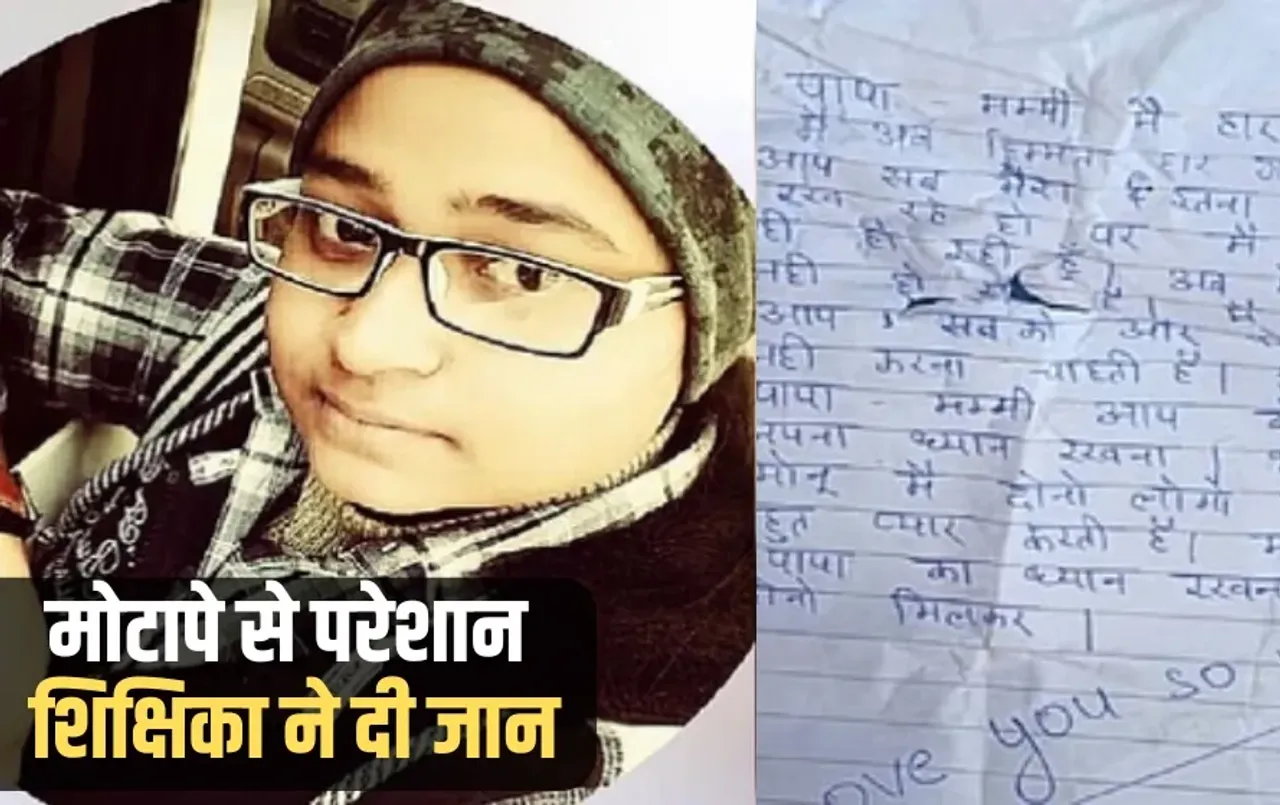 मोटापे से परेशान
शिक्षिका ने दी जान
पापा - मम्मी मै हार
मै अब हिम्मत हार
आप सब मेरा इतना
रख रहे हो पर मै
ही हो रही है। अब
नही हो है। मै
आप सबको और
नही करना चाहती है।
पापा - मम्मी आप
अपना ध्यान रखना।
मोनू मै दोनो लोगो
हुत प्यार करती है।
पापा का ध्यान रखना
मिलकर।
ove you so